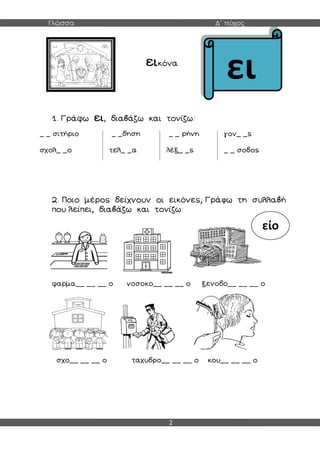 Γλώσσα Δ΄ τεύχος
εικόνα
ει
1. Γράφω ει, διαβάζω και τονίζω:
_ _ σιτήριο _ _δηση _ _ ρήνη γον_ _ς
σχολ_ _ο τελ_ _α λέξ_ _ς _ _ σοδος
2. Ποιο μέρος δείχνουν οι εικόνες; Γράφω τη συλλαβή
που λείπει, διαβάζω και τονίζω:
είο
φαρμα__ __ __ ο νοσοκο__ __ __ ο ξενοδο__ __ __ ο
σχο__ __ __ ο ταχυδρο__ __ __ ο κου__ __ __ ο
2